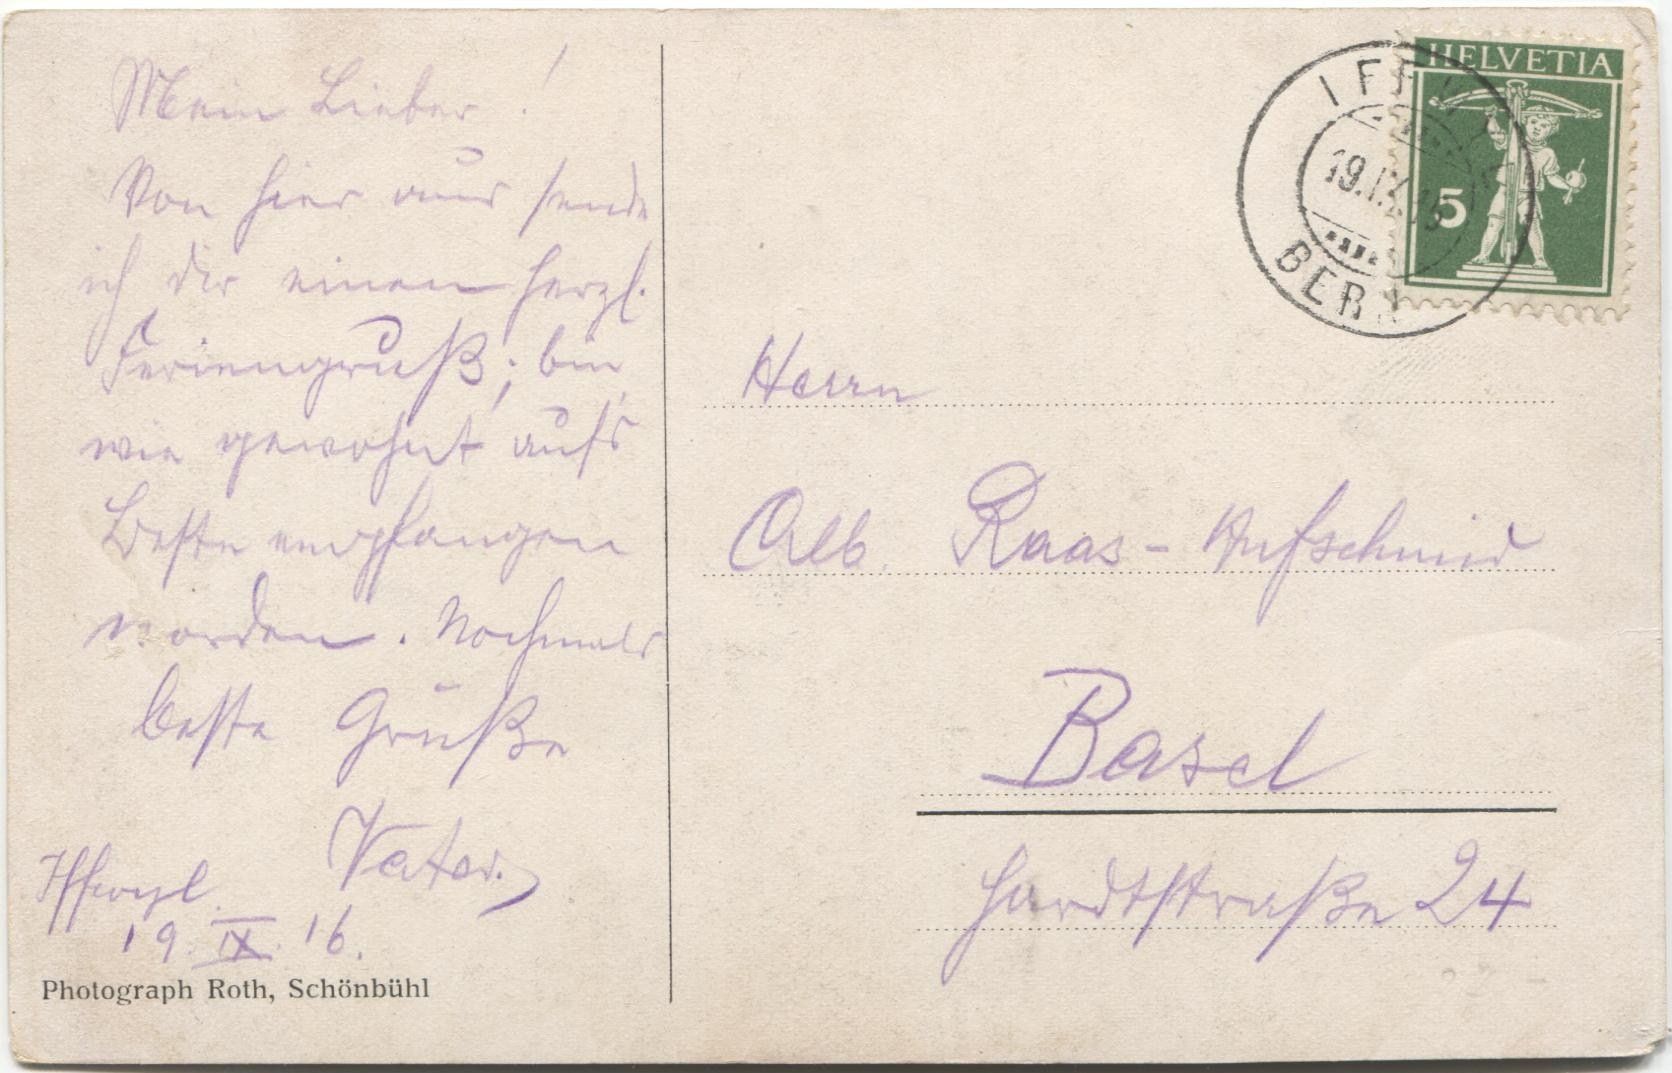 Mein Lieber!
Von hier aus sende
ich dir einen herzl.
Feriengruß; bin
wie gewohnt aufs
Beste empfangen
worden. Nochmals
beste Grüße
Vater.
Iffwyl
19. IX. 16.
Photograph Roth, Schönbühl
HELVETIA
5
19.IX.16
BERN
Herrn
Alb. Raas - Aufschmid
Basel
Hardtstraße 24